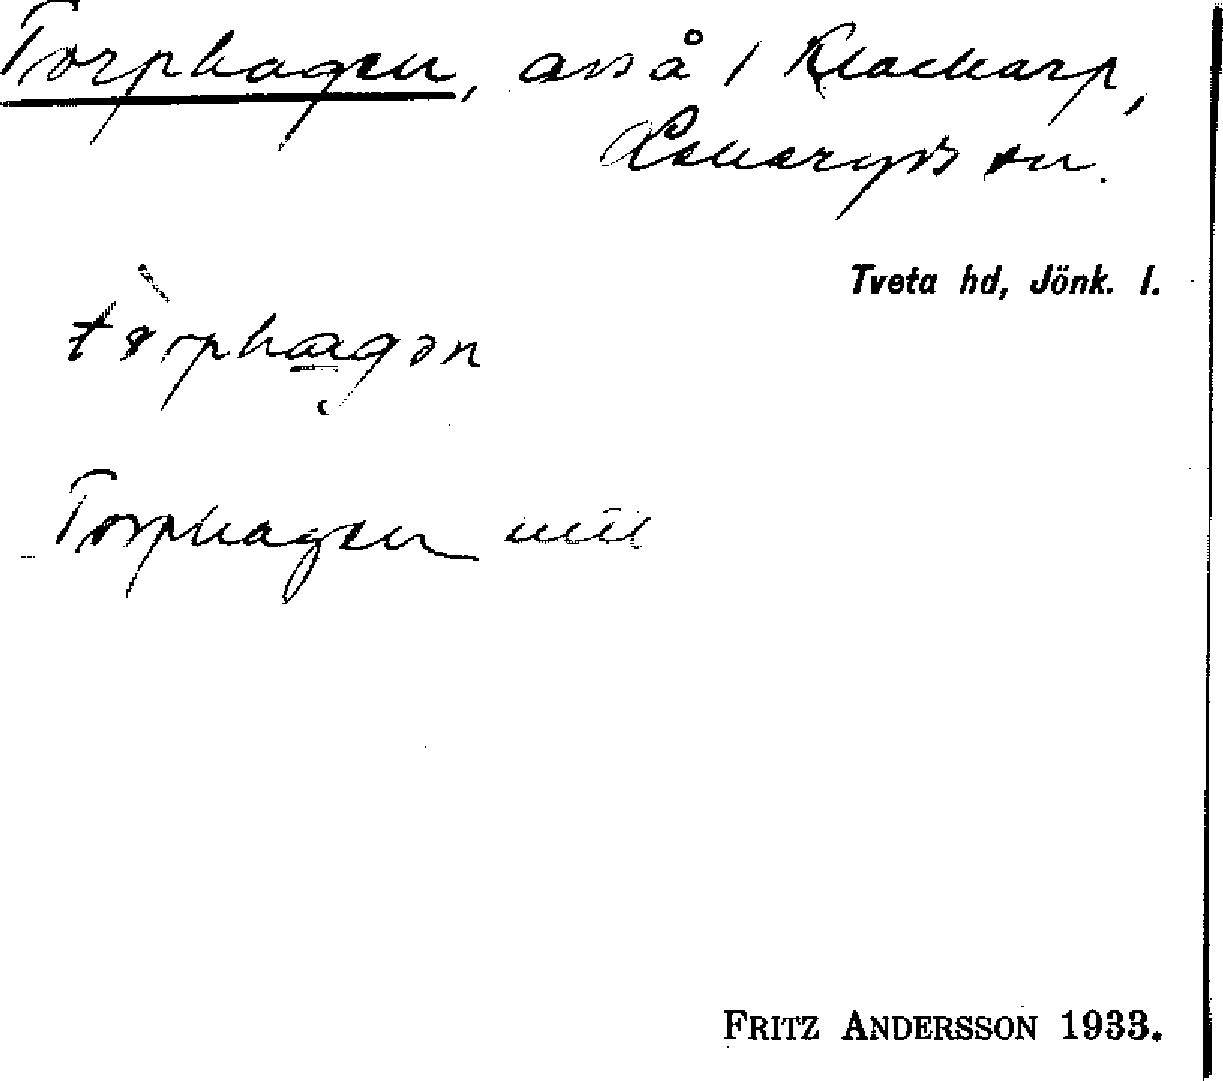 Torphagen, avs å / Klackarp,
Lekeryds sn.
Tveta hd, Jönk. l.
tørphagən
Torphagen
FRITZ ANDERSSON 1933.